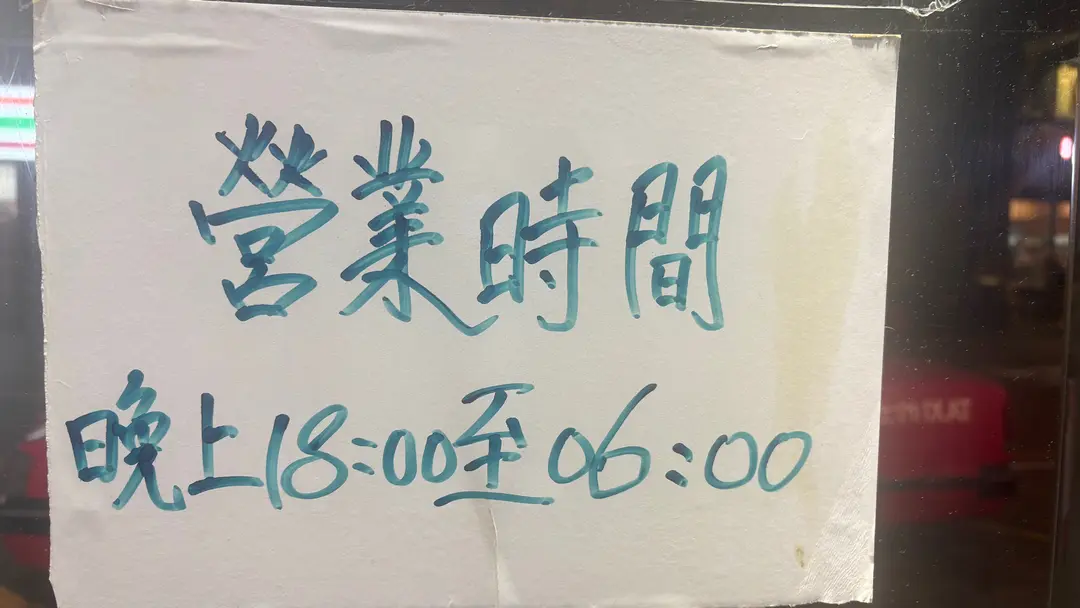 營業時間
晚上18:00至06:00